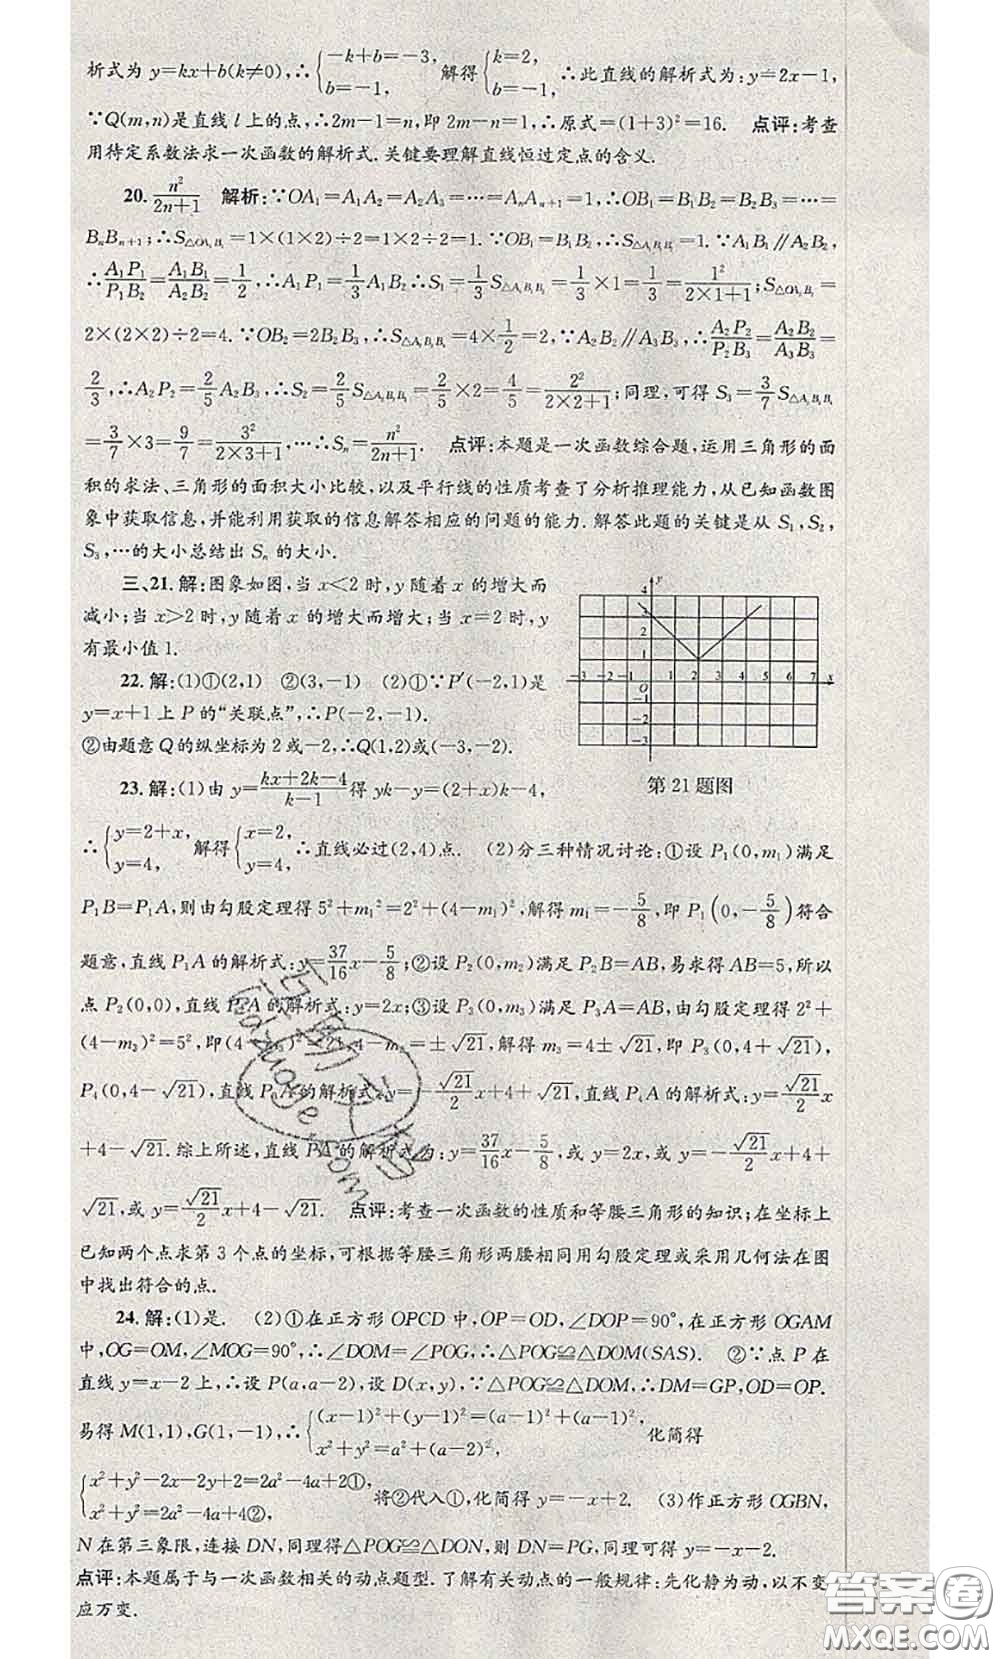 析式为 y=kx+b(k≠0),∴{-k+b=-3, b=-1, 解得{k=2, b=-1, ∴此直线的解析式为:y=2x-1,
∵Q(m,n)是直线 l 上的点,∴2m-1=n,即 2m-n=1,∴原式=(1+3)²=16. 点评:考查
用待定系数法求一次函数的解析式.关键要理解直线恒过定点的含义.
20. n²/(2n+1) 解析:∵OA₁=A₁A₂=A₂A₃=…=AₙAₙ₊₁=1,∴OB₁=B₁B₂=B₂B₃=…=
BₙBₙ₊₁;∴S△OA₁B₁=1×(1×2)÷2=1×2÷2=1.∵OB₁=B₁B₂,∴S△A₁B₁B₂=1.∵A₁B₁∥A₂B₂,
∴A₁P₁/P₁B₂=A₁B₁/A₂B₂=1/2,∴A₁P₁=1/3A₁B₂∴S₁=1/3S△A₁B₁B₂=1/3×1=1/3=1²/(2×1+1);S△OA₂B₂=
2×(2×2)÷2=4.∵OB₂=2B₂B₃,∴S△A₂B₂B₃=4×1/2=2,∵A₂B₂∥A₃B₃,∴A₂P₂/P₂B₃=A₂B₂/A₃B₃=
2/3,∴A₂P₂=2/5A₂B₃,∴S₂=2/5S△A₂B₂B₃=2/5×2=4/5=2²/(2×2+1);同理,可得 S₃=3/7S△A₃B₃B₄
=3/7×3=9/7=3²/(2×3+1),…∴Sₙ=n²/(2n+1). 点评:本题是一次函数综合题,运用三角形的面
积的求法、三角形的面积大小比较,以及平行线的性质考查了分析推理能力,从已知函数图
象中获取信息,并能利用获取的信息解答相应的问题的能力.解答此题的关键是从 S₁,S₂,
S₃,…的大小总结出 Sₙ 的大小.
三、21.解:图象如图,当 x<2 时,y 随着 x 的增大而
减小;当 x>2 时,y 随着 x 的增大而增大;当 x=2 时,y
有最小值 1.
22.解:(1)①(2,1) ②(3,-1) (2)①∵P′(-2,1)是
y=x+1 上 P 的“关联点”,∴P(-2,-1).
②由题意 Q 的纵坐标为 2 或-2,∴Q(1,2)或(-3,-2).
第 21 题图
23.解:(1)由 y=(kx+2k-4)/(k-1)得 yk-y=(2+x)k-4,
∴{y=2+x, y=4, 解得{x=2, y=4, ∴直线必过(2,4)点. (2)分三种情况讨论:①设 P₁(0,m₁)满足
P₁B=P₁A,则由勾股定理得 5²+m₁²=2²+(4-m₁)²,解得 m₁=-5/8,即 P₁(0,-5/8)符合
题意,直线 P₁A 的解析式:y=37/16x-5/8;②设 P₂(0,m₂)满足 P₂B=AB,易求得 AB=5,所以
点 P₂(0,0),直线 P₂A 的解析式:y=2x;③设 P₃(0,m₃)满足 P₃A=AB,由勾股定理得 2²+
(4-m₃)²=5²,即(4-m₃)²=21,4-m₃=±√21,解得 m₃=4±√21,即 P₃(0,4+√21),
P₄(0,4-√21),直线 P₃A 的解析式:y=-√21/2x+4+√21,直线 P₄A 的解析式:y=√21/2x
+4-√21.综上所述,直线 PA 的解析式为:y=37/16x-5/8,或 y=2x,或 y=-√21/2x+4+
√21,或 y=√21/2x+4-√21. 点评:考查一次函数的性质和等腰三角形的知识;在坐标上
已知两个点求第 3 个点的坐标,可根据等腰三角形两腰相同用勾股定理或采用几何法在图
中找出符合的点.
24.解:(1)是. (2)①在正方形 OPCD 中,OP=OD,∠DOP=90°,在正方形 OGAM
中,OG=OM,∠MOG=90°,∴∠DOM=∠POG,∴△POG≌△DOM(SAS). ②∵点 P 在
直线 y=x-2 上,∴设 P(a,a-2),设 D(x,y),∵△POG≌△DOM,∴DM=GP,OD=OP.
易得 M(1,1),G(1,-1),∴{(x-1)²+(y-1)²=(a-1)²+(a-1)², x²+y²=a²+(a-2)², 化简得
{x²+y²-2x-2y+2=2a²-4a+2①, x²+y²=2a²-4a+4②, 将②代入①,化简得 y=-x+2. (3)作正方形 OGBN,
N 在第三象限,连接 DN,同理得△POG≌△DON,则 DN=PG,同理可得 y=-x-2.
点评:本题属于与一次函数相关的动点题型.了解有关动点的一般规律:先化静为动,以不变
应万变.
答案圈
MXQE.COM